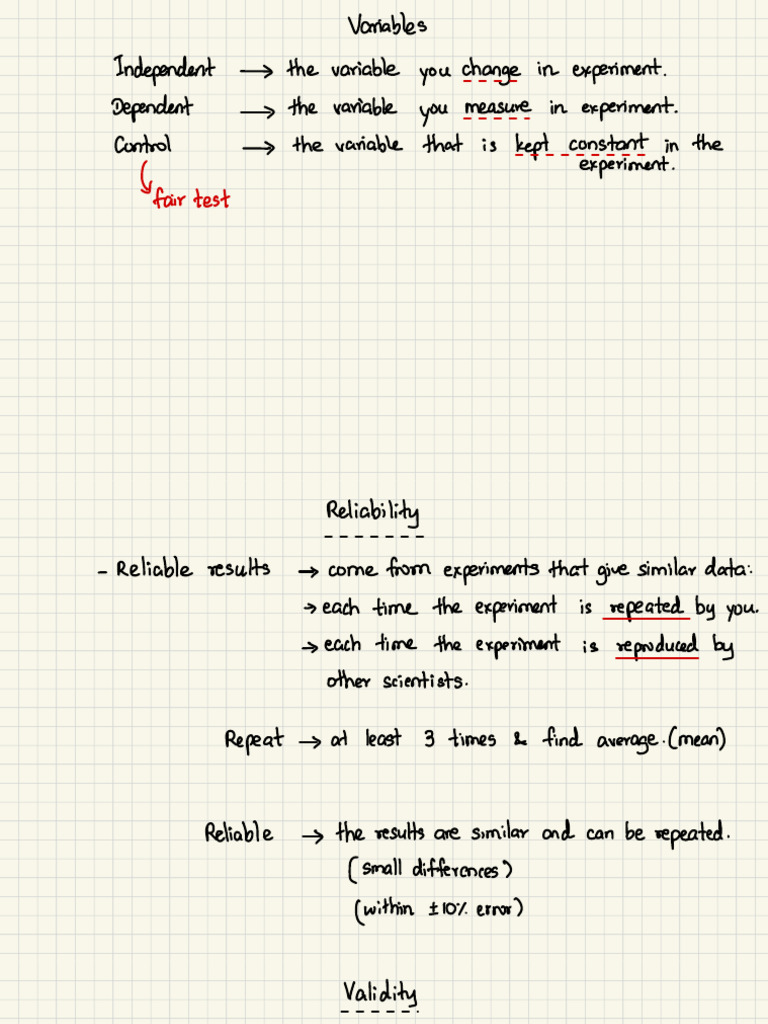 Variables
Independent → the variable you change in experiment.
Dependent → the variable you measure in experiment.
Control → the variable that is kept constant in the
experiment.
fair test
Reliability
- Reliable results → come from experiments that give similar data:
→ each time the experiment is repeated by you.
→ each time the experiment is reproduced by
other scientists.
Repeat → at least 3 times & find average. (mean)
Reliable → the results are similar and can be repeated.
(small differences)
(within ±10% error)
Validity